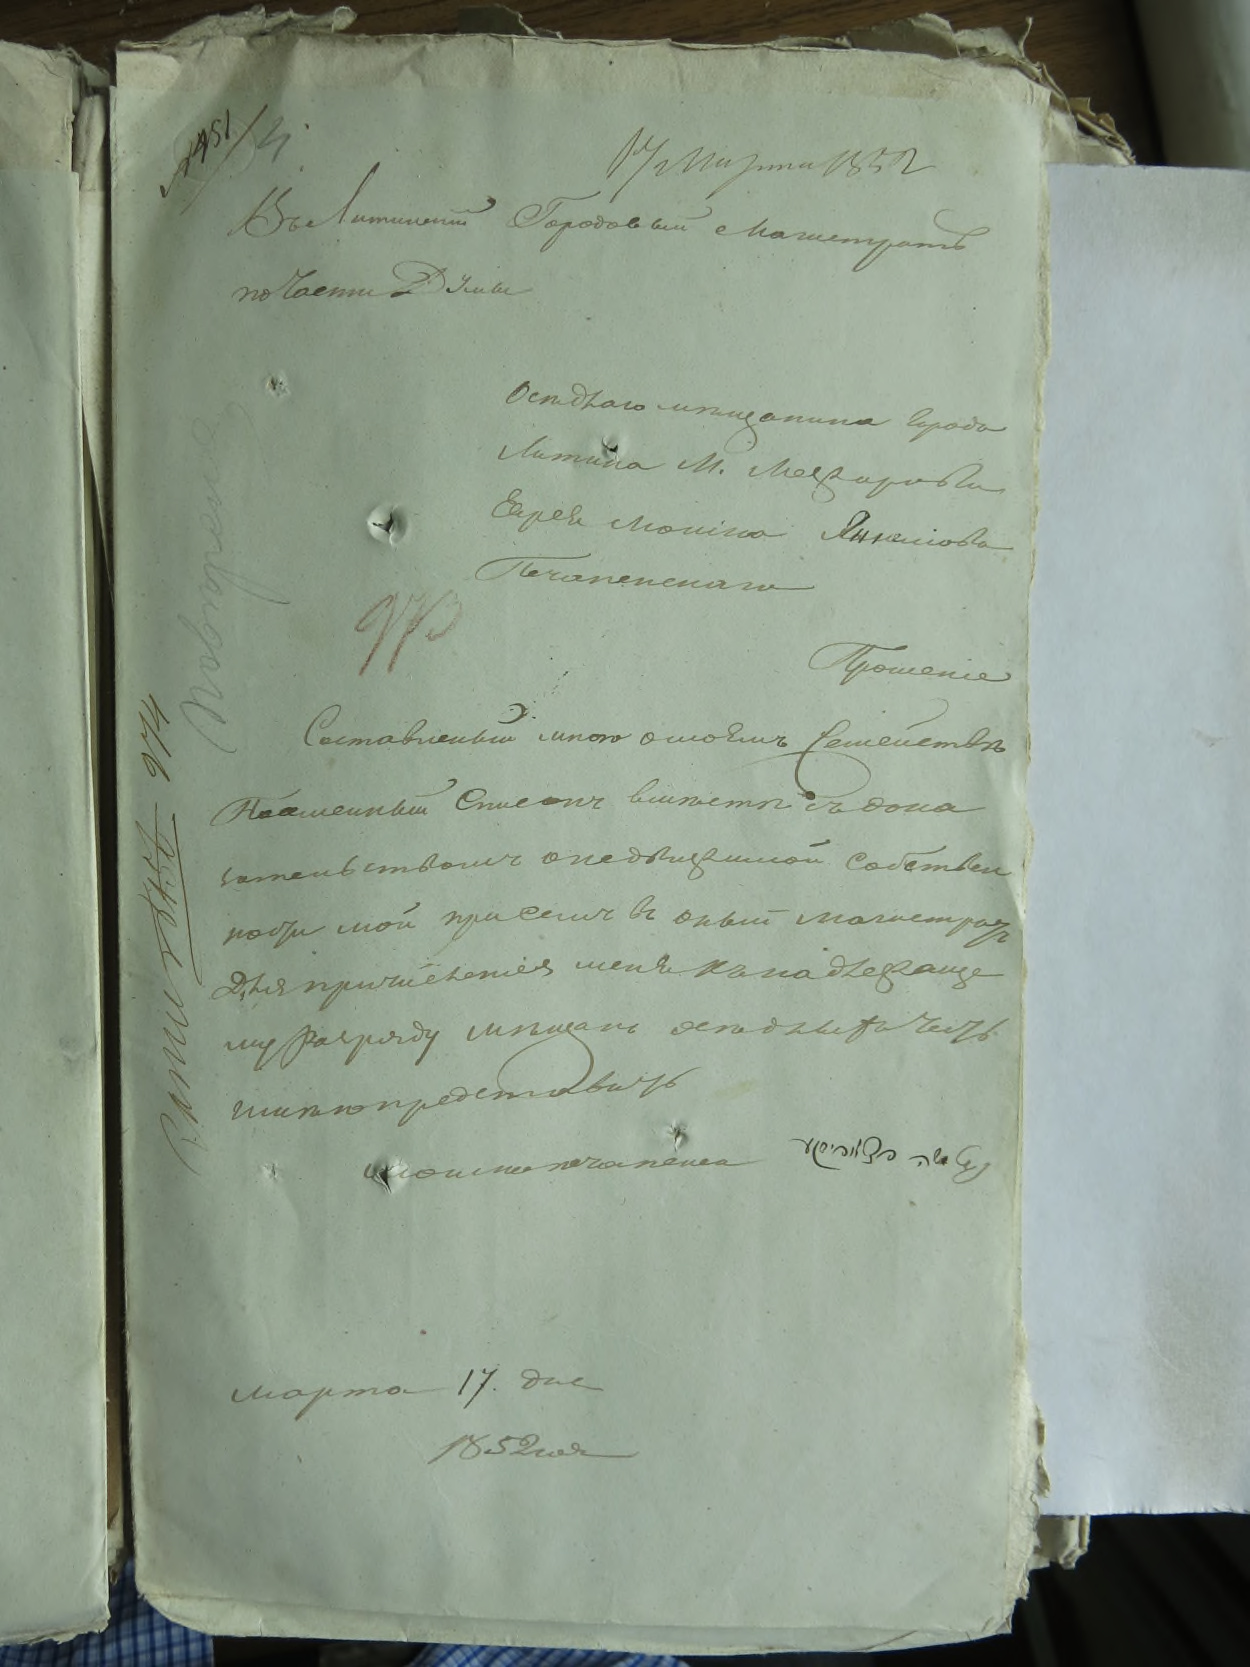 № 451
17 Марта 1852
Въ Литинскій Городовый Магистратъ
по Части Думы
Оседлаго мещанина города
Литина М. Межирова
Еврея Мошка Янкелова
Печапенскаго
973
Прошеніе
Составленный мною о моемъ Семействе
Посемейный Списокъ вместе съ дока
зательствомъ о недвижимой собствен
ности мой при семъ въ оный магистратъ
Для причисленія меня къ надлежаще
му Разряду мещанъ оседлыхъ честь
имею представить
Мошко печапенса
марта 17. дня
1852 года
974